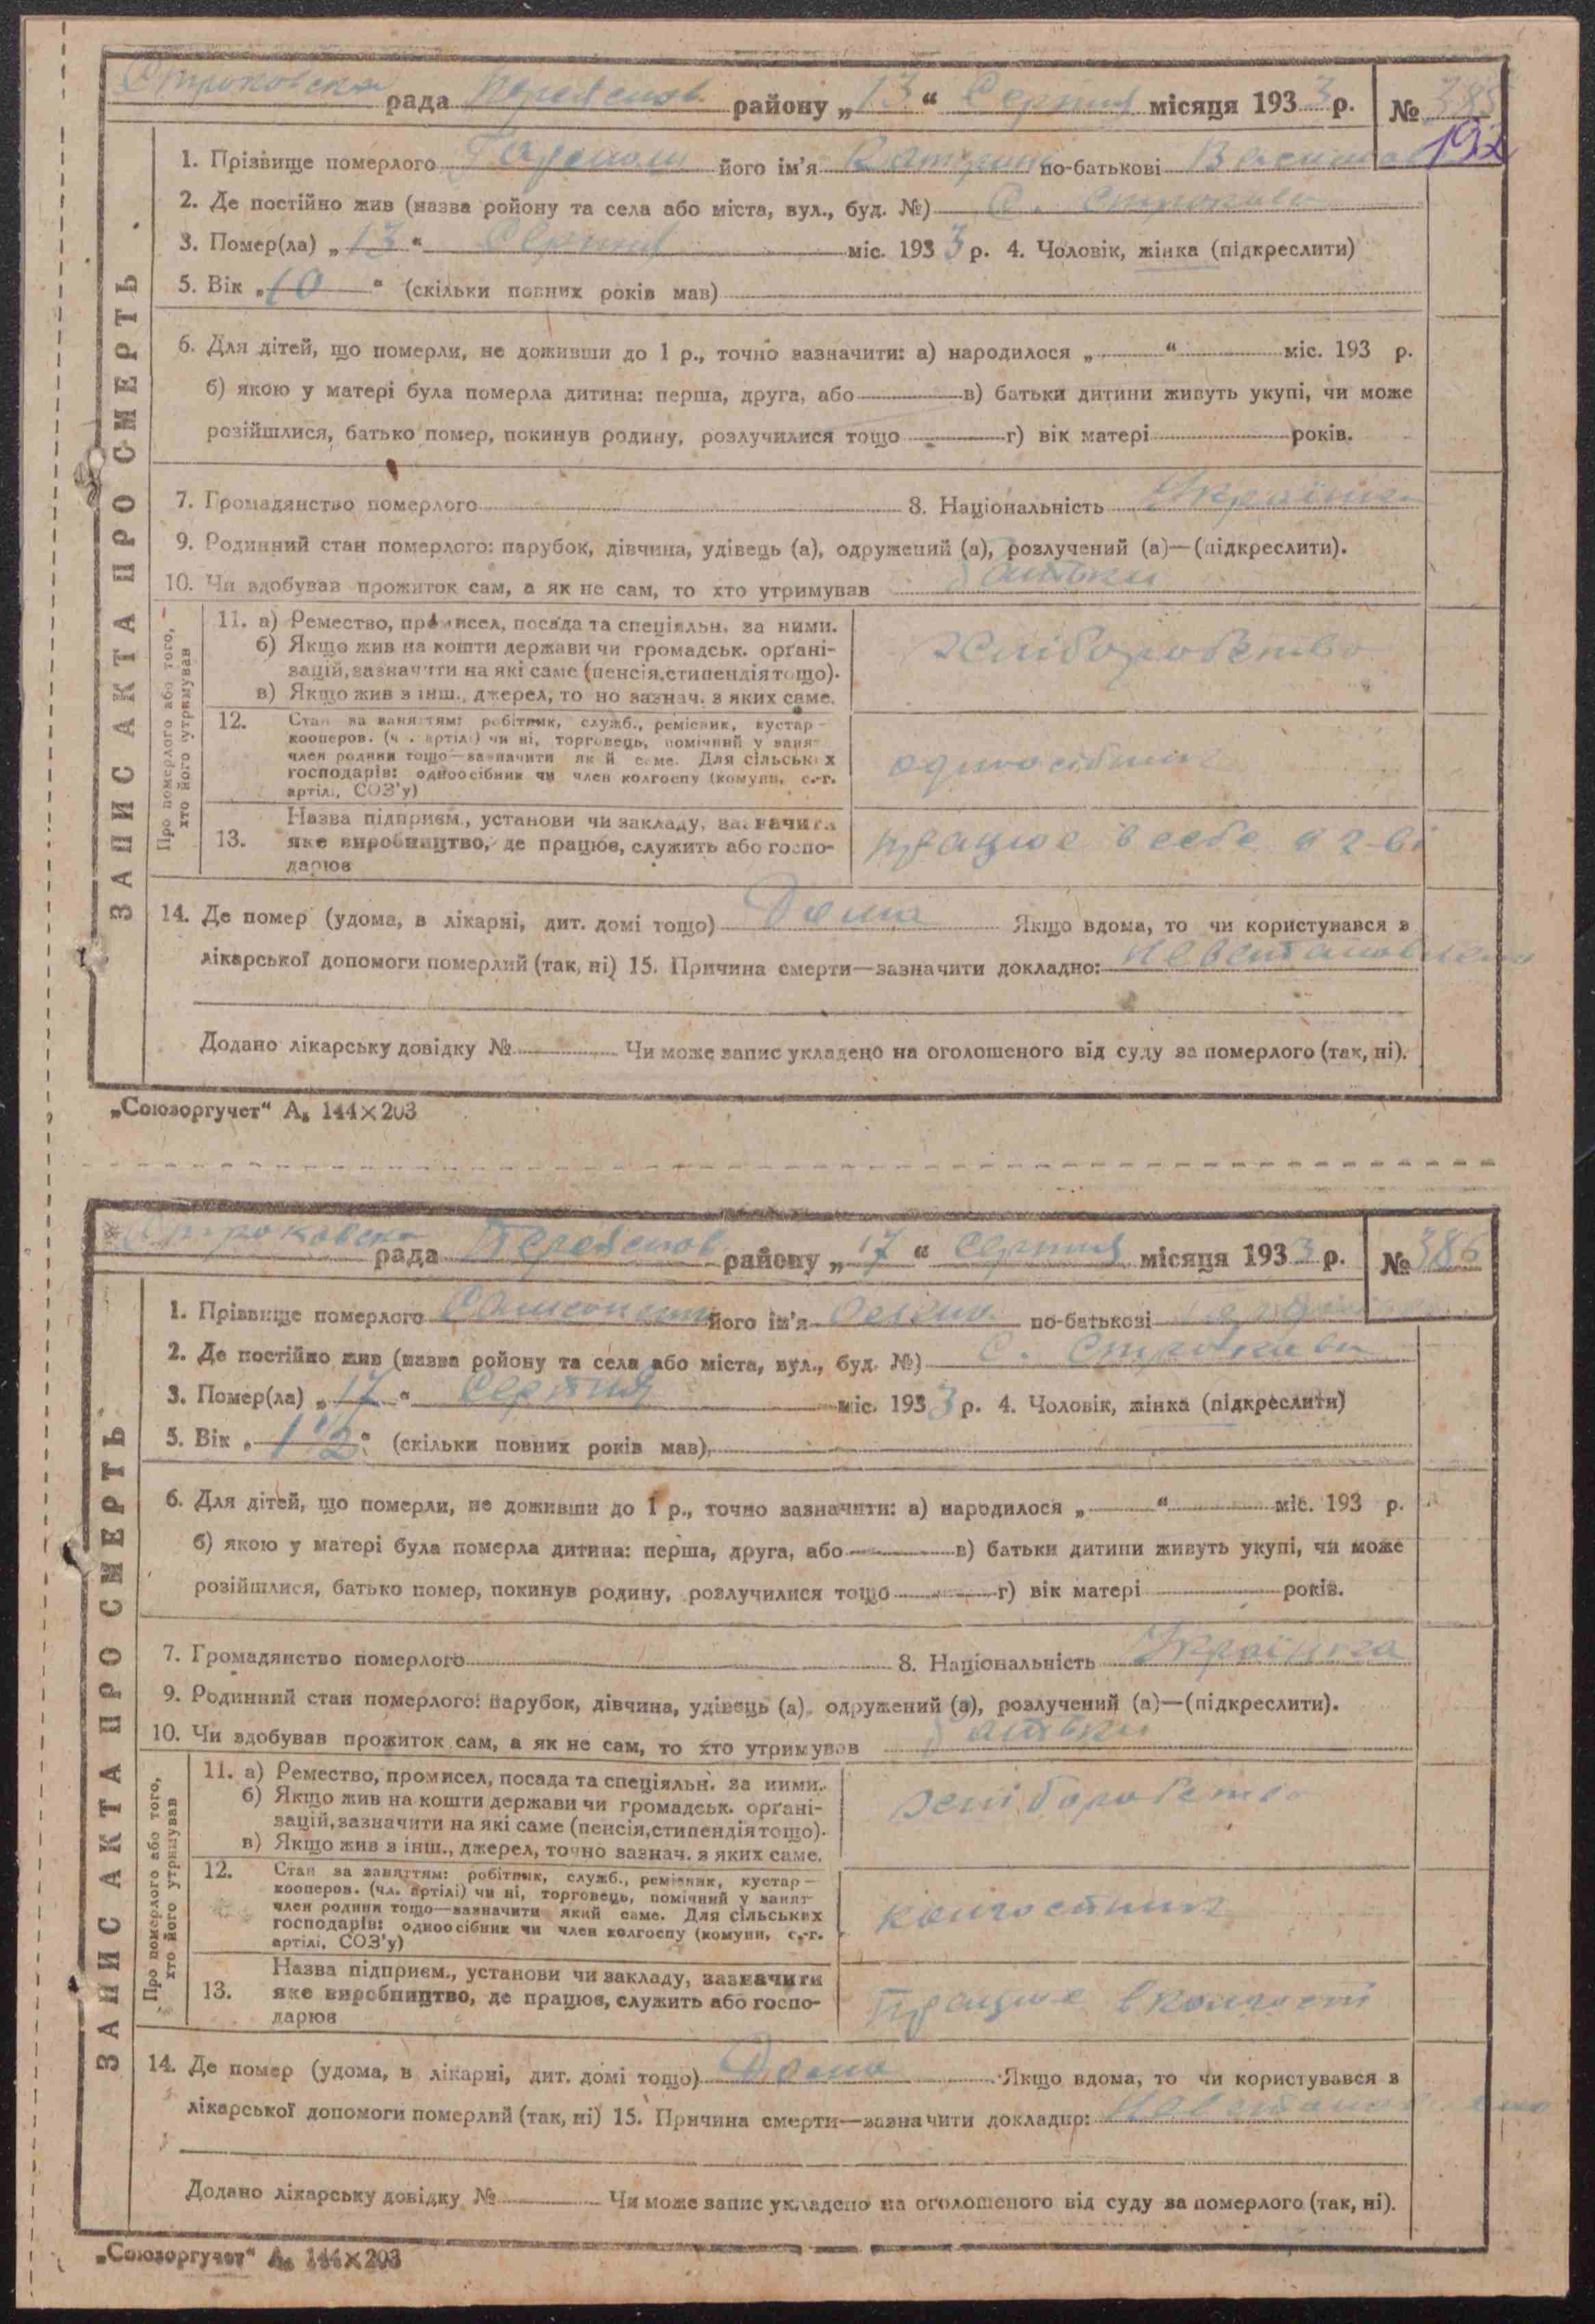 Строковська рада Переяслов. району „13“ Серпня місяця 1933 р. № 385
192
1. Прізвище померлого його ім'я по-батькові
2. Де постійно жив (назва ройону та села або міста, вул., буд. №) С. Строкова
3. Помер(ла) „13“ Серпня міс. 1933 р. 4. Чоловік, жінка (підкреслити)
5. Вік „10“ (скільки повних років мав)
6. Для дітей, що померли, не доживши до 1 р., точно зазначити: а) народилося „ “ міс. 193 р.
б) якою у матері була померла дитина: перша, друга, або в) батьки дитини живуть укупі, чи може
розійшлися, батько помер, покинув родину, розлучилися тощо г) вік матері років.
7. Громадянство померлого 8. Національність Українка
9. Родинний стан померлого: парубок, дівчина, удівець (а), одружений (а), розлучений (а)—(підкреслити).
10. Чи здобував прожиток сам, а як не сам, то хто утримував батьки
ЗАПИС АКТА ПРО СМЕРТЬ
Про померлого або того, хто його утримував
11. а) Ремество, промисел, посада та спеціяльн. за ними.
б) Якщо жив на кошти держави чи громадськ. органі-
зацій, зазначити на які саме (пенсія, стипендія тощо).
в) Якщо жив з інш., джерел, точно зазнач. з яких саме.
хліборобство
12. Стан за заняттям: робітник, служб., ремісник, кустар—
кооперов. (чл. артілі) чи ні, торговець, помічний у занят
член родини тощо—зазначити який саме. Для сільських
господарів: одноосібник чи член колгоспу (комуни, с.-г.
артілі, СОЗ'у)
одноосібник
13. Назва підприєм., установи чи закладу, зазначити
яке виробництво, де працює, служить або госпо-
дарює
працює в себе в г-ві
14. Де помер (удома, в лікарні, дит. домі тощо) Дома Якщо вдома, то чи користувався з
лікарської допомоги померлий (так, ні) 15. Причина смерти—зазначити докладно: Невстановлено
Додано лікарську довідку № Чи може запис укладено на оголошеного від суду за померлого (так, ні).
„Союзоргучет“ А₅ 144×203
Строковська рада Переяслов. району „17“ Серпня місяця 1933 р. № 386
1. Прізвище померлого його ім'я Олена по-батькові
2. Де постійно жив (назва ройону та села або міста, вул., буд. №) С. Строкова
3. Помер(ла) „17“ Серпня міс. 1933 р. 4. Чоловік, жінка (підкреслити)
5. Вік „1 1/2“ (скільки повних років мав)
6. Для дітей, що померли, не доживши до 1 р., точно зазначити: а) народилося „ “ міс. 193 р.
б) якою у матері була померла дитина: перша, друга, або в) батьки дитини живуть укупі, чи може
розійшлися, батько помер, покинув родину, розлучилися тощо г) вік матері років.
7. Громадянство померлого 8. Національність Українка
9. Родинний стан померлого: парубок, дівчина, удівець (а), одружений (а), розлучений (а)—(підкреслити).
10. Чи здобував прожиток сам, а як не сам, то хто утримував батьки
ЗАПИС АКТА ПРО СМЕРТЬ
Про померлого або того, хто його утримував
11. а) Ремество, промисел, посада та спеціяльн. за ними.
б) Якщо жив на кошти держави чи громадськ. органі-
зацій, зазначити на які саме (пенсія, стипендія тощо).
в) Якщо жив з інш., джерел, точно зазнач. з яких саме.
хліборобство
12. Стан за заняттям: робітник, служб., ремісник, кустар—
кооперов. (чл. артілі) чи ні, торговець, помічний у занят
член родини тощо—зазначити який саме. Для сільських
господарів: одноосібник чи член колгоспу (комуни, с.-г.
артілі, СОЗ'у)
колгоспник
13. Назва підприєм., установи чи закладу, зазначити
яке виробництво, де працює, служить або госпо-
дарює
Працює в колгоспі
14. Де помер (удома, в лікарні, дит. домі тощо) Дома Якщо вдома, то чи користувався з
лікарської допомоги померлий (так, ні) 15. Причина смерти—зазначити докладно: Невстановлено
Додано лікарську довідку № Чи може запис укладено на оголошеного від суду за померлого (так, ні).
„Союзоргучет“ А₅ 144×203